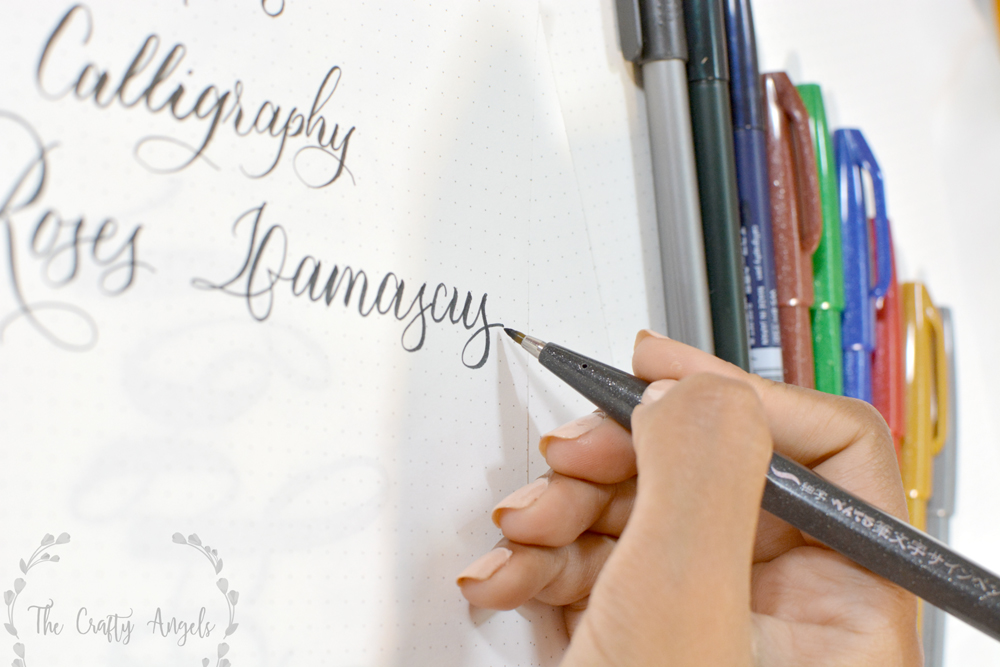 Calligraphy
Roses Damascus
筆文字サインペン
The Crafty Angels